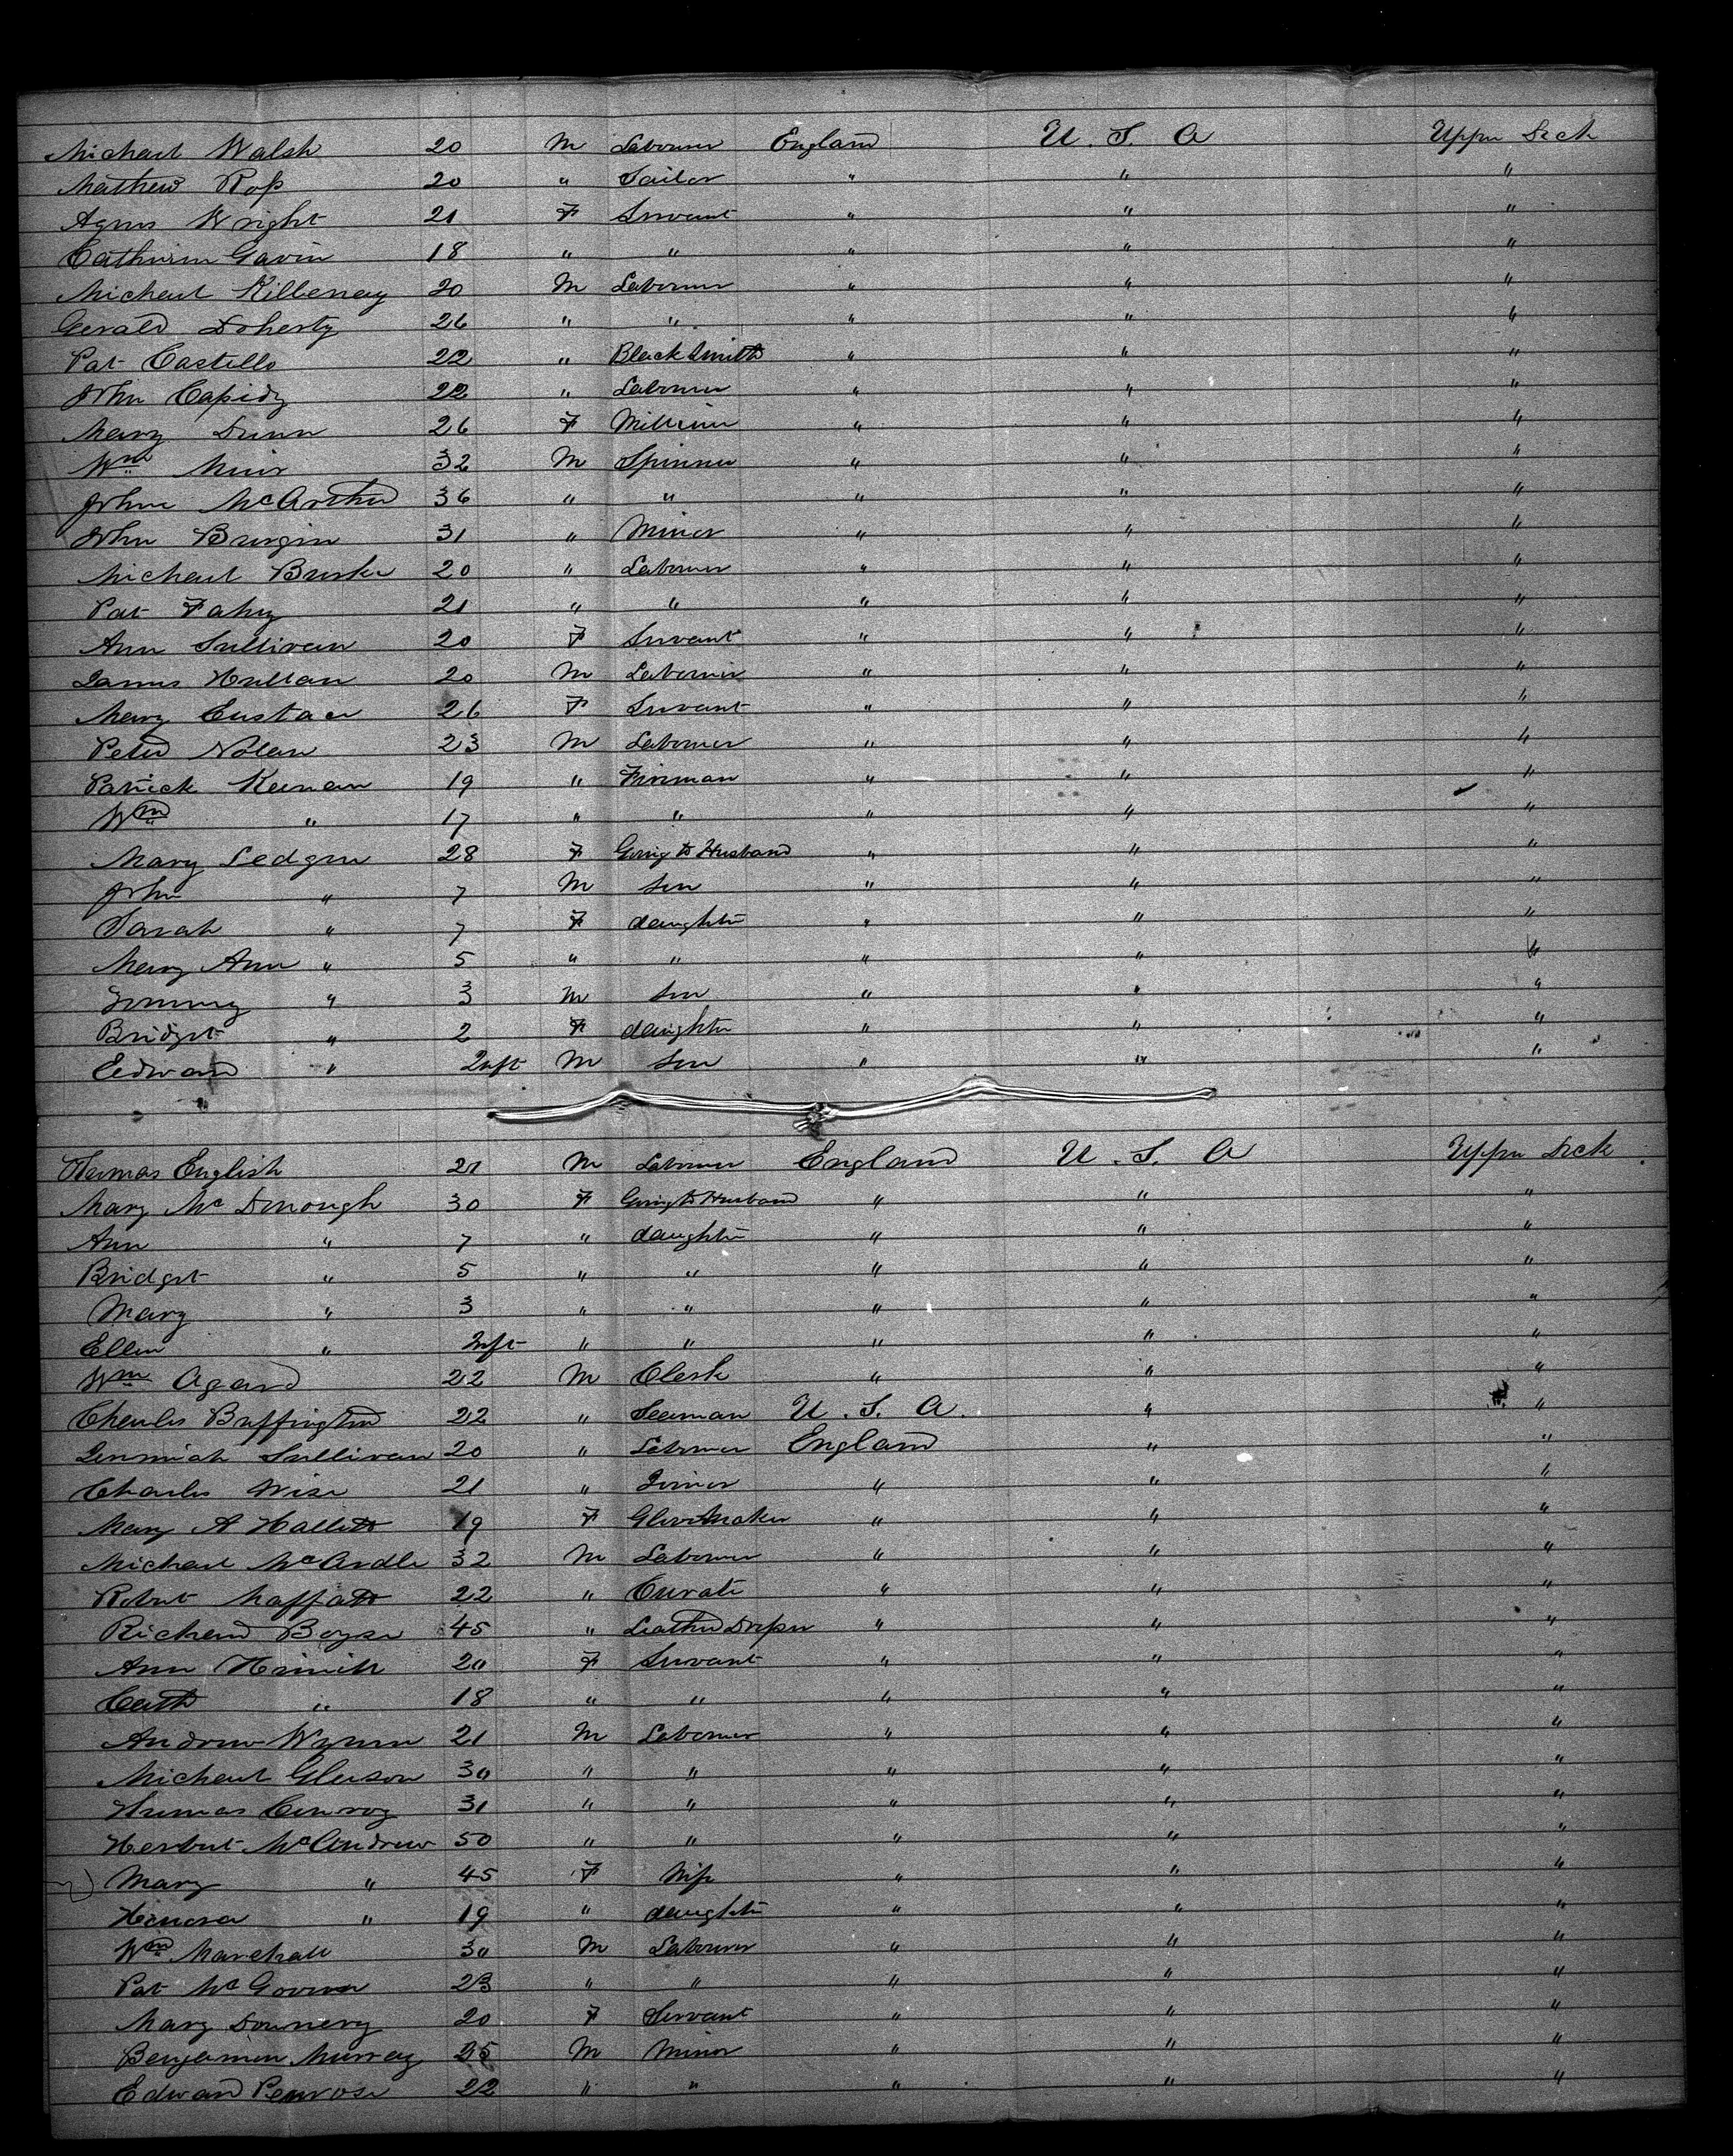 Michael Walsh 20 M Labourer England U. S. A Upper Deck
Mathew Ross 20 " Sailor " " "
Agnes Wright 21 F Servant " " "
Catherine Gavin 18 " " " " "
Michael Killeney 20 M Labourer " " "
Gerald Doherty 26 " " " " "
Pat Castello 22 " Black Smith " " "
John Cassidy 22 " Labourer " " "
Mary Dunn 26 F Milliner " " "
Wm Muir 32 M Spinner " " "
John McArthur 36 " " " " "
John Burgin 31 " Miner " " "
Michael Burke 20 " Labourer " " "
Pat Fahy 21 " " " " "
Ann Sullivan 20 F Servant " " "
James Hullan 20 M Labourer " " "
Mary Eustace 26 F Servant " " "
Peter Nolan 23 M Labourer " " "
Patrick Keenan 19 " Fireman " " "
Wm " 17 " " " " "
Mary Ledger 28 F Going to Husband " " "
John " 7 M son " " "
Sarah " 7 F daughter " " "
Mary Ann " 5 " " " " "
Tommy " 3 M son " " "
Bridget " 2 F daughter " " "
Edward " Inft M son " " "
Thomas English 21 M Labourer England U. S. A Upper Deck
Mary Mc Donough 30 F Going to Husband " " "
Ann " 7 " daughter " " "
Bridget " 5 " " " " "
Mary " 3 " " " " "
Ellen " Inft " " " " "
Wm Agard 22 M Clerk " " "
Charles Buffington 22 " Seaman U. S. A. " "
Jeremiah Sullivan 20 " Labourer England " "
Charles Wise 21 " Joiner " " "
Mary A Hallett 19 F Glove Maker " " "
Michael McArdle 32 M Labourer " " "
Robert Maffatt 22 " Curate " " "
Richard Boyse 45 " Leather Dresser " " "
Ann 20 F Servant " " "
Cath " 18 " " " " "
Andrew Wynne 21 M Labourer " " "
Michael Gleeson 30 " " " " "
Thomas Conroy 31 " " " " "
Herbert McAndrew 50 " " " " "
Mary " 45 F Wife " " "
Honora " 19 " daughter " " "
Wm Marshall 30 M Labourer " " "
Pat McGovern 23 " " " " "
Mary Downery 20 F Servant " " "
Benjamin Murray 25 M Miner " " "
Edward Penrose 22 " " " " "